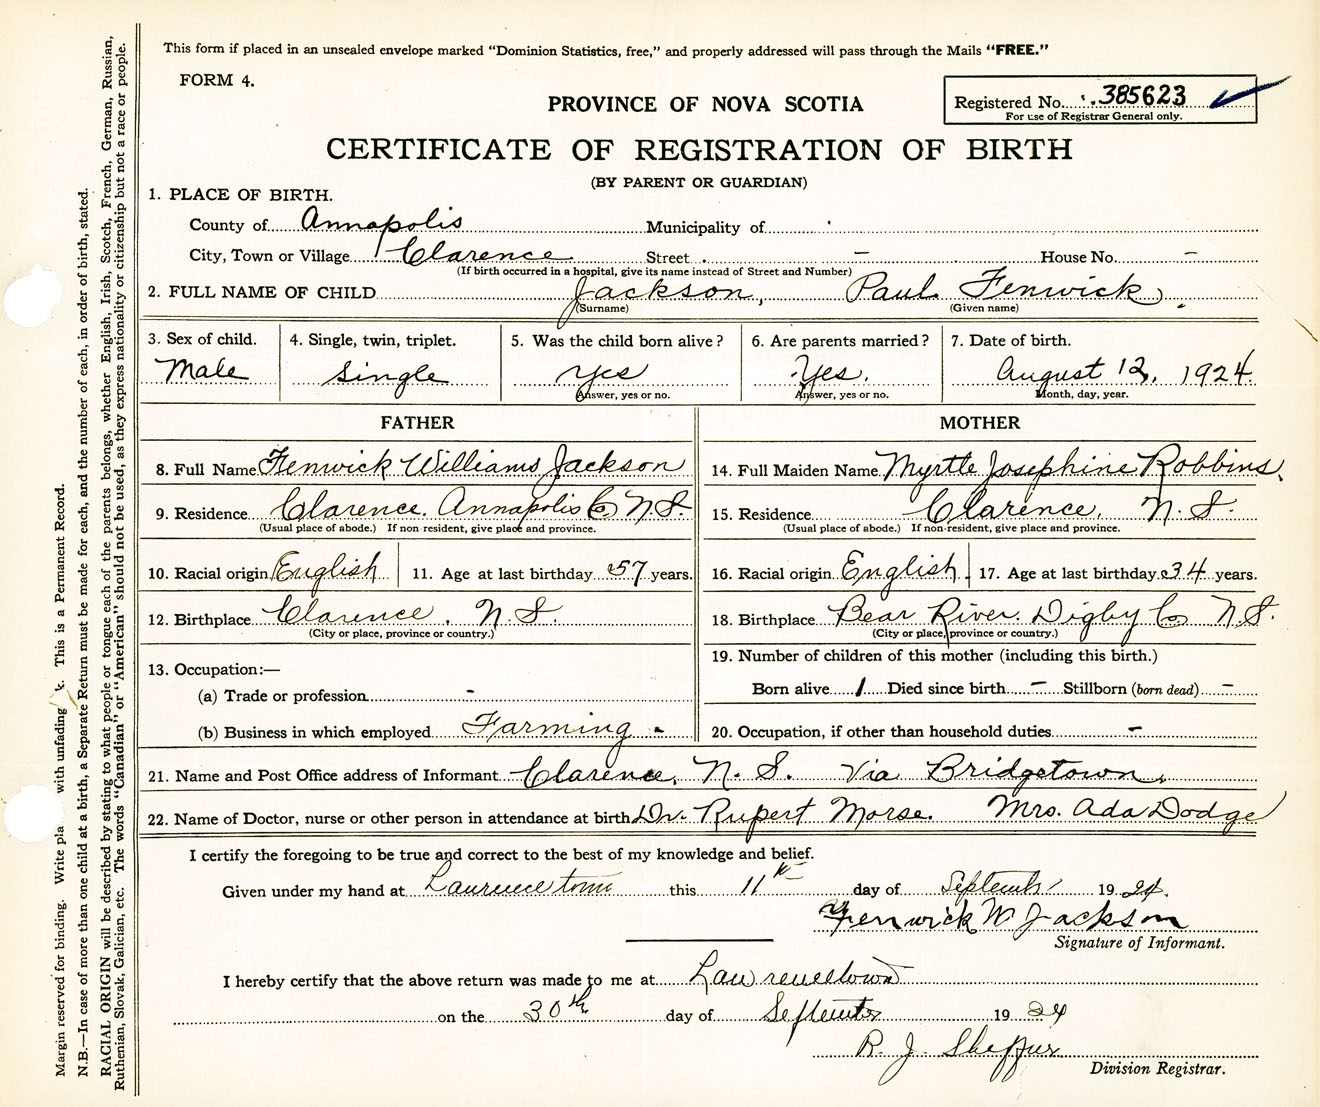 This form if placed in an unsealed envelope marked "Dominion Statistics, free," and properly addressed will pass through the Mails "FREE."
FORM 4.
Registered No. 385623
For use of Registrar General only.
PROVINCE OF NOVA SCOTIA
CERTIFICATE OF REGISTRATION OF BIRTH
(BY PARENT OR GUARDIAN)
1. PLACE OF BIRTH.
County of Annapolis Municipality of
City, Town or Village Clarence Street - House No. -
(If birth occurred in a hospital, give its name instead of Street and Number)
2. FULL NAME OF CHILD Jackson, Paul Fenwick
(Surname) (Given name)
3. Sex of child. 4. Single, twin, triplet. 5. Was the child born alive? 6. Are parents married? 7. Date of birth.
Male Single yes Yes. August 12, 1924.
Answer, yes or no. Answer, yes or no. Month, day, year.
FATHER MOTHER
8. Full Name Fenwick Williams Jackson 14. Full Maiden Name Myrtle Josephine Robbins.
9. Residence Clarence. Annapolis Co N.S. 15. Residence Clarence, N.S.
(Usual place of abode.) If non-resident, give place and province. (Usual place of abode.) If non-resident, give place and province.
10. Racial origin English 11. Age at last birthday 57 years. 16. Racial origin English. 17. Age at last birthday 34 years.
12. Birthplace Clarence, N.S. 18. Birthplace Bear River. Digby Co N.S.
(City or place, province or country.) (City or place, province or country.)
13. Occupation:— 19. Number of children of this mother (including this birth.)
(a) Trade or profession - Born alive 1 Died since birth - Stillborn (born dead) -
(b) Business in which employed Farming - 20. Occupation, if other than household duties -
21. Name and Post Office address of Informant Clarence, N.S. Via Bridgetown.
22. Name of Doctor, nurse or other person in attendance at birth Dr. Rupert Morse. Mrs. Ada Dodge
I certify the foregoing to be true and correct to the best of my knowledge and belief.
Given under my hand at Lawrencetown this 11th day of September 1924.
Fenwick W Jackson
Signature of Informant.
I hereby certify that the above return was made to me at Lawrencetown
on the 30th day of September 1924
R. J. Shaffner
Division Registrar.
Margin reserved for binding. Write pla with unfading k. This is a Permanent Record.
N.B.—In case of more than one child at a birth, a Separate Return must be made for each, and the number of each, in order of birth, stated.
RACIAL ORIGIN will be described by stating to what people or tongue each of the parents belongs, whether English, Irish, Scotch, French, German, Russian,
Ruthenian, Slovak, Galician, etc. The words "Canadian" or "American" should not be used, as they express nationality or citizenship but not a race or people.